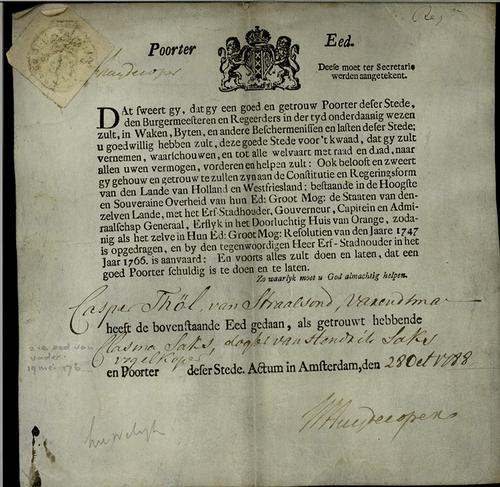 Poorter Eed.
Deese moet ter Secretarie
werden aangetekent.
Huydecoper
DAt sweert gy, dat gy een goed en getrouw Poorter deser Stede,
den Burgermeesteren en Regeerders in der tyd onderdaanig wezen
zult, in Waken, Byten, en andere Beschermenissen en lasten deser Stede;
u goedwillig hebben zult, deze goede Stede voor 't kwaad, dat gy zult
vernemen, waarschouwen, en tot alle welvaart met raad en daad, naar
allen uwen vermogen, vorderen en helpen zult: Ook belooft en zweert
gy gehouw en getrouw te zullen zyn aan de Constitutie en Regeringsform
van den Lande van Holland en Westfriesland; bestaande in de Hoogste
en Souveraine Overheid van hun Ed: Groot Mog: de Staaten van den-
zelven Lande, met het Erf-Stadhouder, Gouverneur, Capitein en Admi-
raalschap Generaal, Erflyk in het Doorluchtig Huis van Orange, zoda-
nig als het zelve in Hun Ed: Groot Mog: Resolutien van den Jaare 1747
is opgedragen, en by den tegenwoordigen Heer Erf-Stadhouder in het
Jaar 1766. is aanvaard: En voorts alles zult doen en laten, dat een
goed Poorter schuldig is te doen en te laten.
Zo waarlyk moet u God almachtig helpen.
Casper Thöl, van Straalsond, Varendman
heeft de bovenstaande Eed gedaan, als getrouwt hebbende
Saks, dogter van Hendrik Saks
en Poorter deser Stede. Actum in Amsterdam, den 28 Oct 1788
zie eed van
vader
19 mei 176
huwelijk
Huydecoper